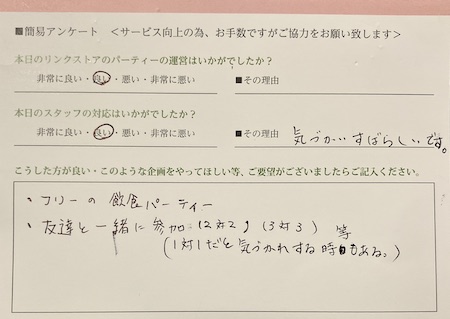 ■簡易アンケート ＜サービス向上の為、お手数ですがご協力をお願い致します＞
本日のリンクストアのパーティーの運営はいかがでしたか？
非常に良い・良い・悪い・非常に悪い ■その理由
本日のスタッフの対応はいかがでしたか？
非常に良い・良い・悪い・非常に悪い ■その理由 気づかいすばらしいです。
こうした方が良い・このような企画をやってほしい等、ご要望がございましたらご記入ください。
・フリーの飲食パーティー
・友達と一緒に参加（2対2，（3対3） 等
（1対1だと気づかれする時もある。）